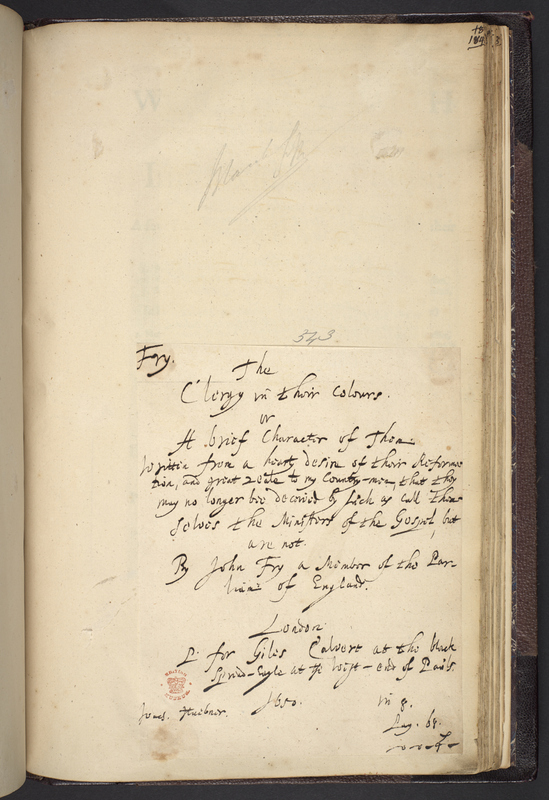 543.
Fry.
The
Clergy in their Colours.
or
A brief Character of Them
Written from a hearty desire of their Reforma-
tion, and great zeale to my Country-men that they
may no longer bee deceived by such as call them-
selves the Ministers of the Gospel, but
are not.
By John Fry a Member of the Par-
liam of England.
London
P. for Giles Calvert at the black
Spred-Eagle at ye West-end of Pauls
1650. in 8.
Pag. 68.